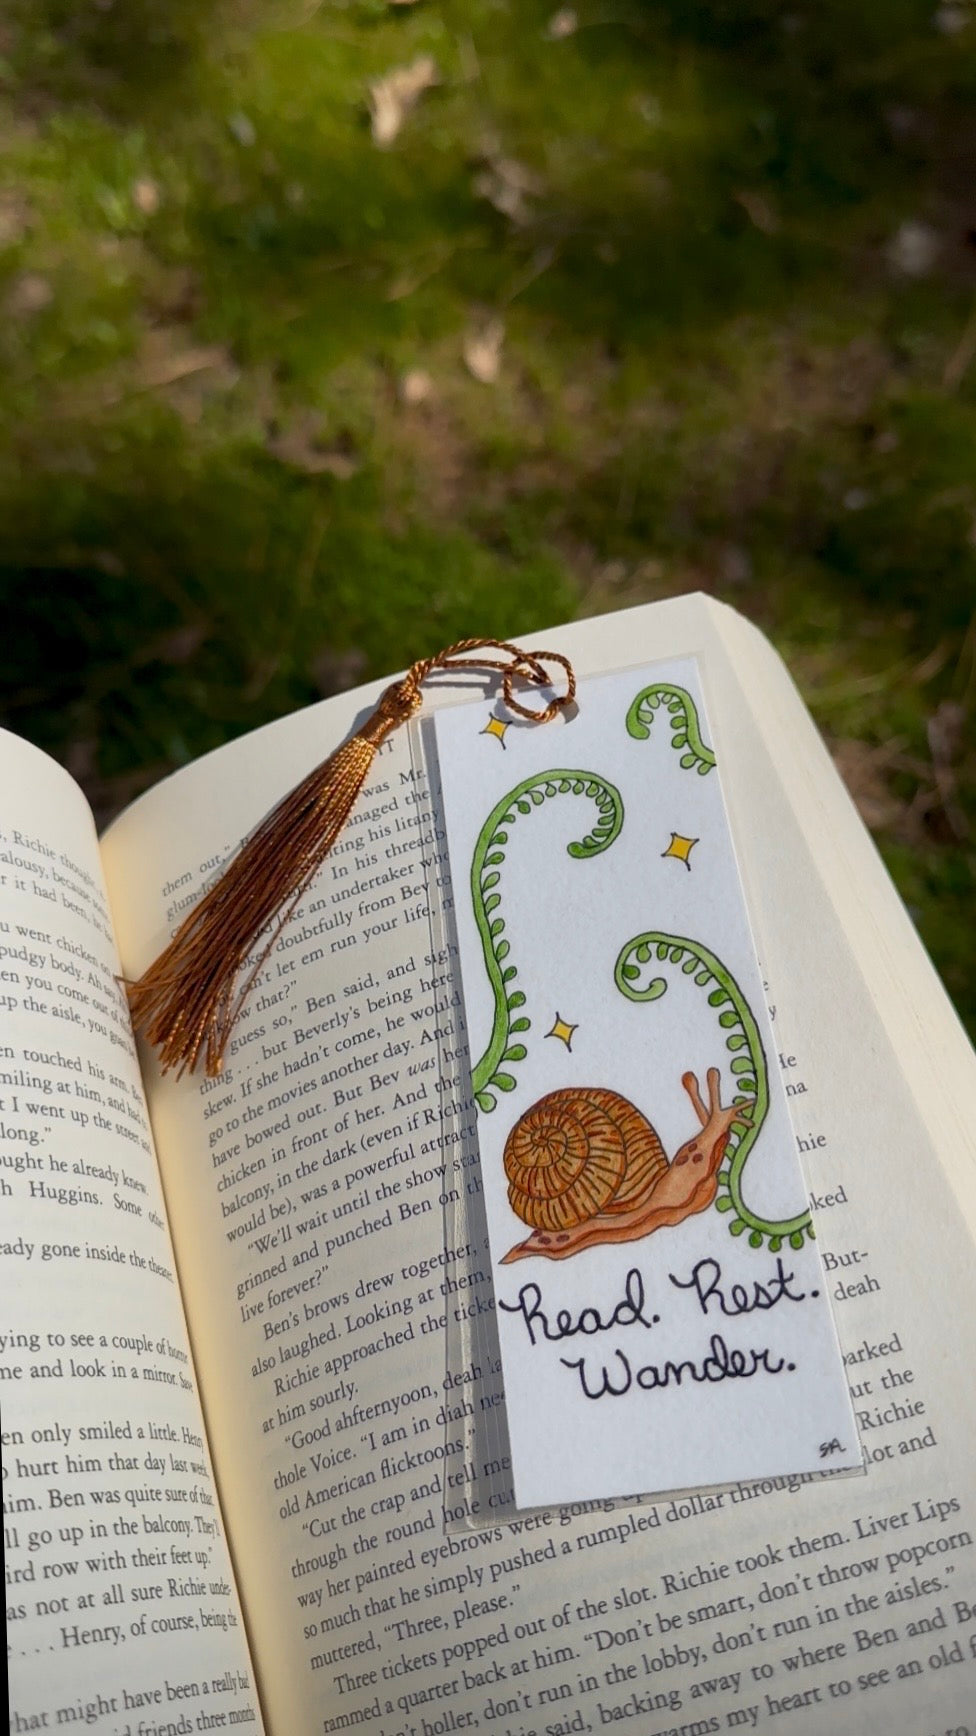 , Richie though
alousy, because
r it had been, he
u went chicken on
pudgy body. Ah say,
en you come out of
up the aisle, you
en touched his arm.
miling at him, and
t I went up the street
long."
ought he already knew.
h Huggins. Some other
eady gone inside the theater,
ying to see a couple of
me and look in a mirror.
en only smiled a little. Henry
o hurt him that day last week,
im. Ben was quite sure of that.
ll go up in the balcony. They'll
ird row with their feet up."
as not at all sure Richie under-
. . . Henry, of course, being the
hat might have been a really bad
d friends three months
IT
was Mr.
them out,"
anaged the
glum-
iting his litany
." In his threadb
like an undertaker who
oked doubtfully from Bev to
n't let em run your life, m
ow that?"
guess so," Ben said, and sigh
thing . . . but Beverly's being here
skew. If she hadn't come, he would
go to the movies another day. And i
have bowed out. But Bev was her
chicken in front of her. And the
balcony, in the dark (even if Richie
would be), was a powerful attract
"We'll wait until the show star
grinned and punched Ben on th
live forever?"
Ben's brows drew together, a
also laughed. Looking at them,
Richie approached the ticke
at him sourly.
"Good ahfternyoon, deah la
thole Voice. "I am in diah nee
old American flicktoons."
"Cut the crap and tell me
through the round hole cu
way her painted eyebrows were going up
so much that he simply pushed a rumpled dollar through the slot and
muttered, "Three, please."
Three tickets popped out of the slot. Richie took them. Liver Lips
rammed a quarter back at him. "Don't be smart, don't throw popcorn
n't holler, don't run in the lobby, don't run in the aisles."
hie said, backing away to where Ben and Be
warms my heart to see an old f
y
He
na
hie
oked
But-
deah
barked
ut the
Richie
Read. Rest.
Wander.
SA